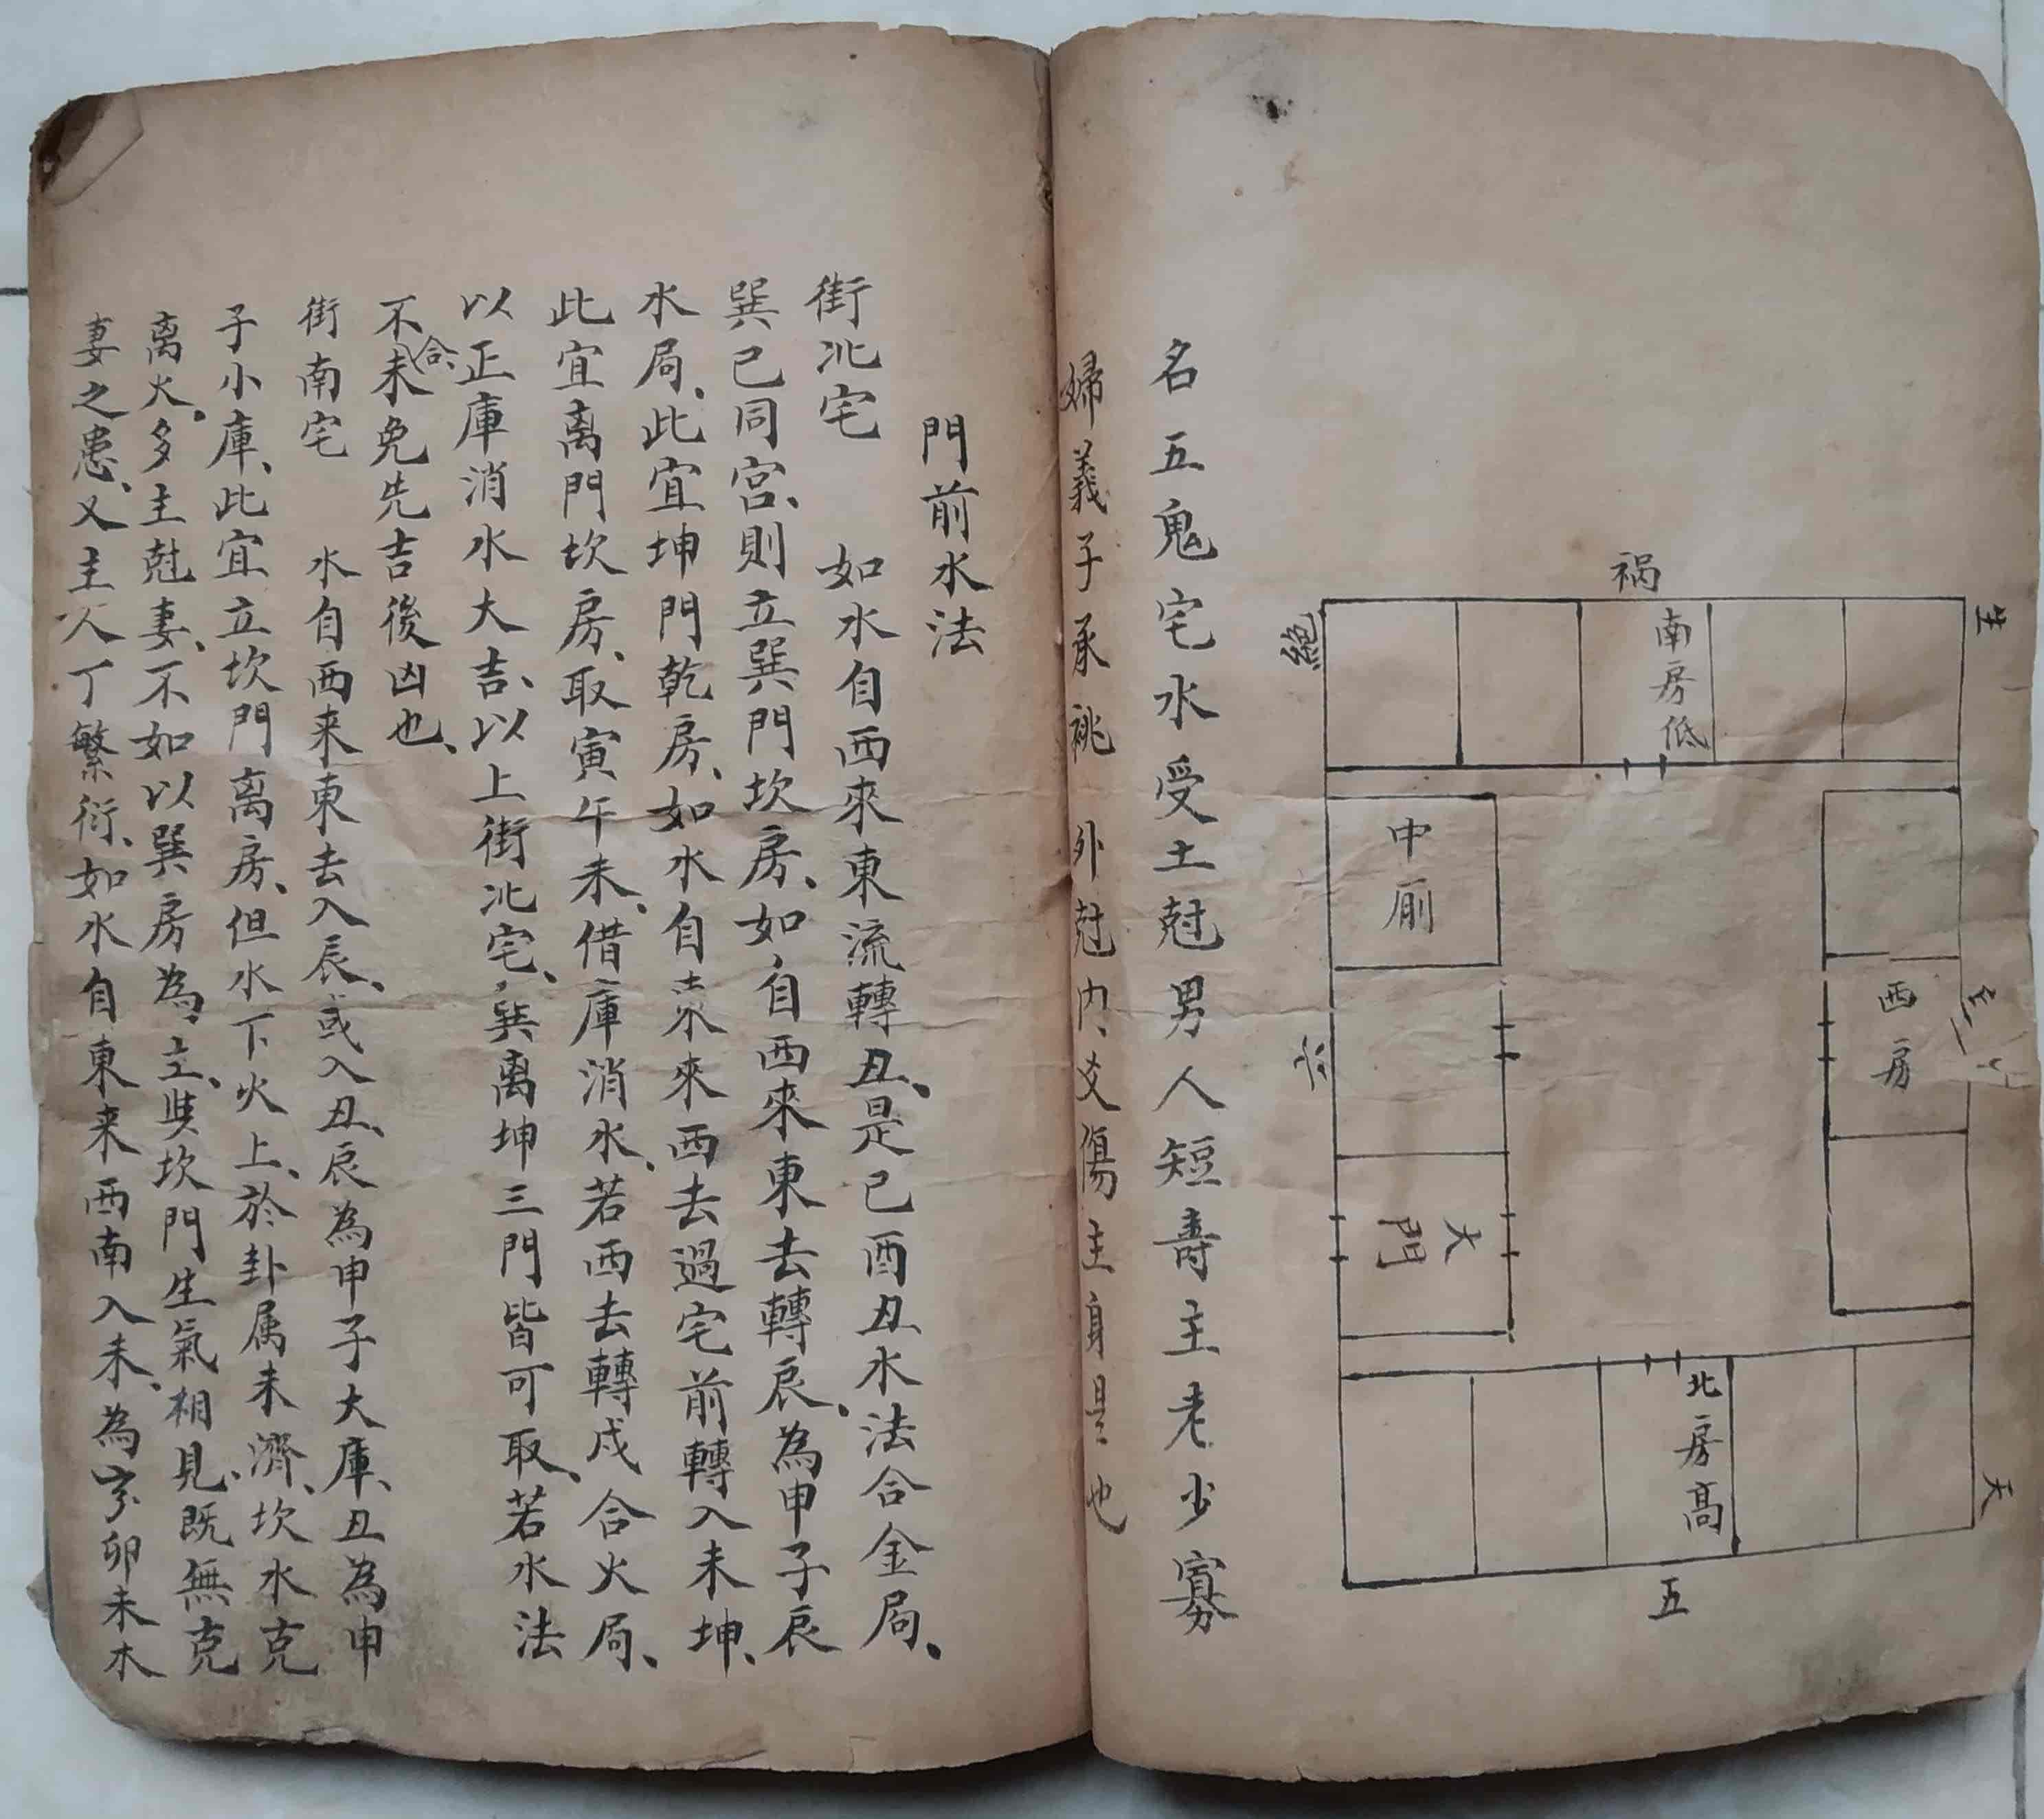 祸
生
絶
南房低
中厢
西房
六
大門
北房高
天
五
名五鬼宅水受土尅男人短壽主老少寡
婦義子承祧外尅内爻傷主身是也
門前水法
街北宅 如水自西來東流轉丑、是巳酉丑水法合金局、
巽巳同宮、則立巽門坎房、如自西來東去轉辰、為申子辰
水局、此宜坤門乾房、如水自東來西去過宅前轉入未坤、
此宜离門坎房、取寅午未、借庫消水、若西去轉戌合火局、
以正庫消水大吉、以上街北宅、巽离坤三門皆可取、若水法
不合、未免先吉後凶也、
街南宅 水自西来東去入辰、或入丑、辰為申子大庫、丑為申
子小庫、此宜立坎門离房、但水下火上、於卦属未濟、坎水克
离火、多主尅妻、不如以巽房為主、與坎門生氣相見、既無克
妻之患、又主人丁繁衍、如水自東来西南入未、為亥卯未木